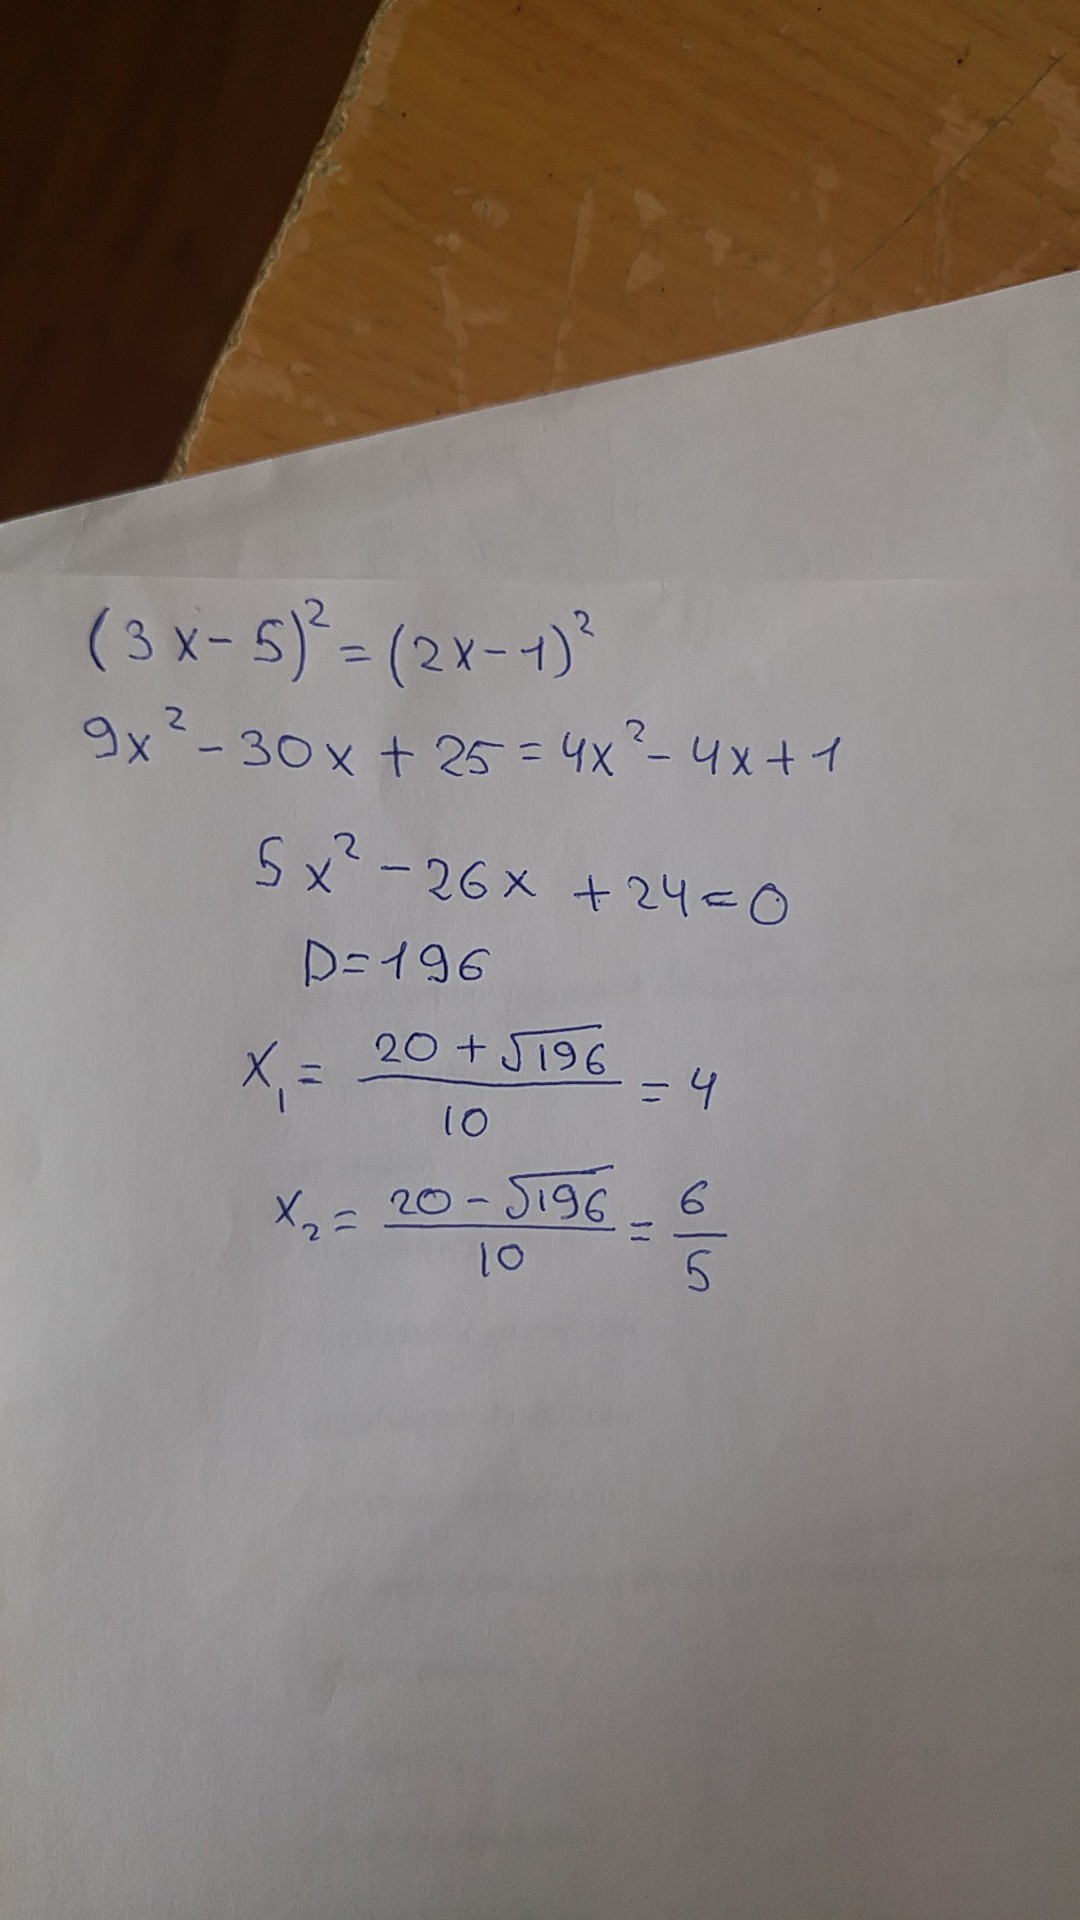 (3x-5)² = (2x-1)²
9x² - 30x + 25 = 4x² - 4x + 1
5x² - 26x + 24 = 0
D = 196
x₁ = (20 + √196)/10 = 4
x₂ = (20 - √196)/10 = 6/5